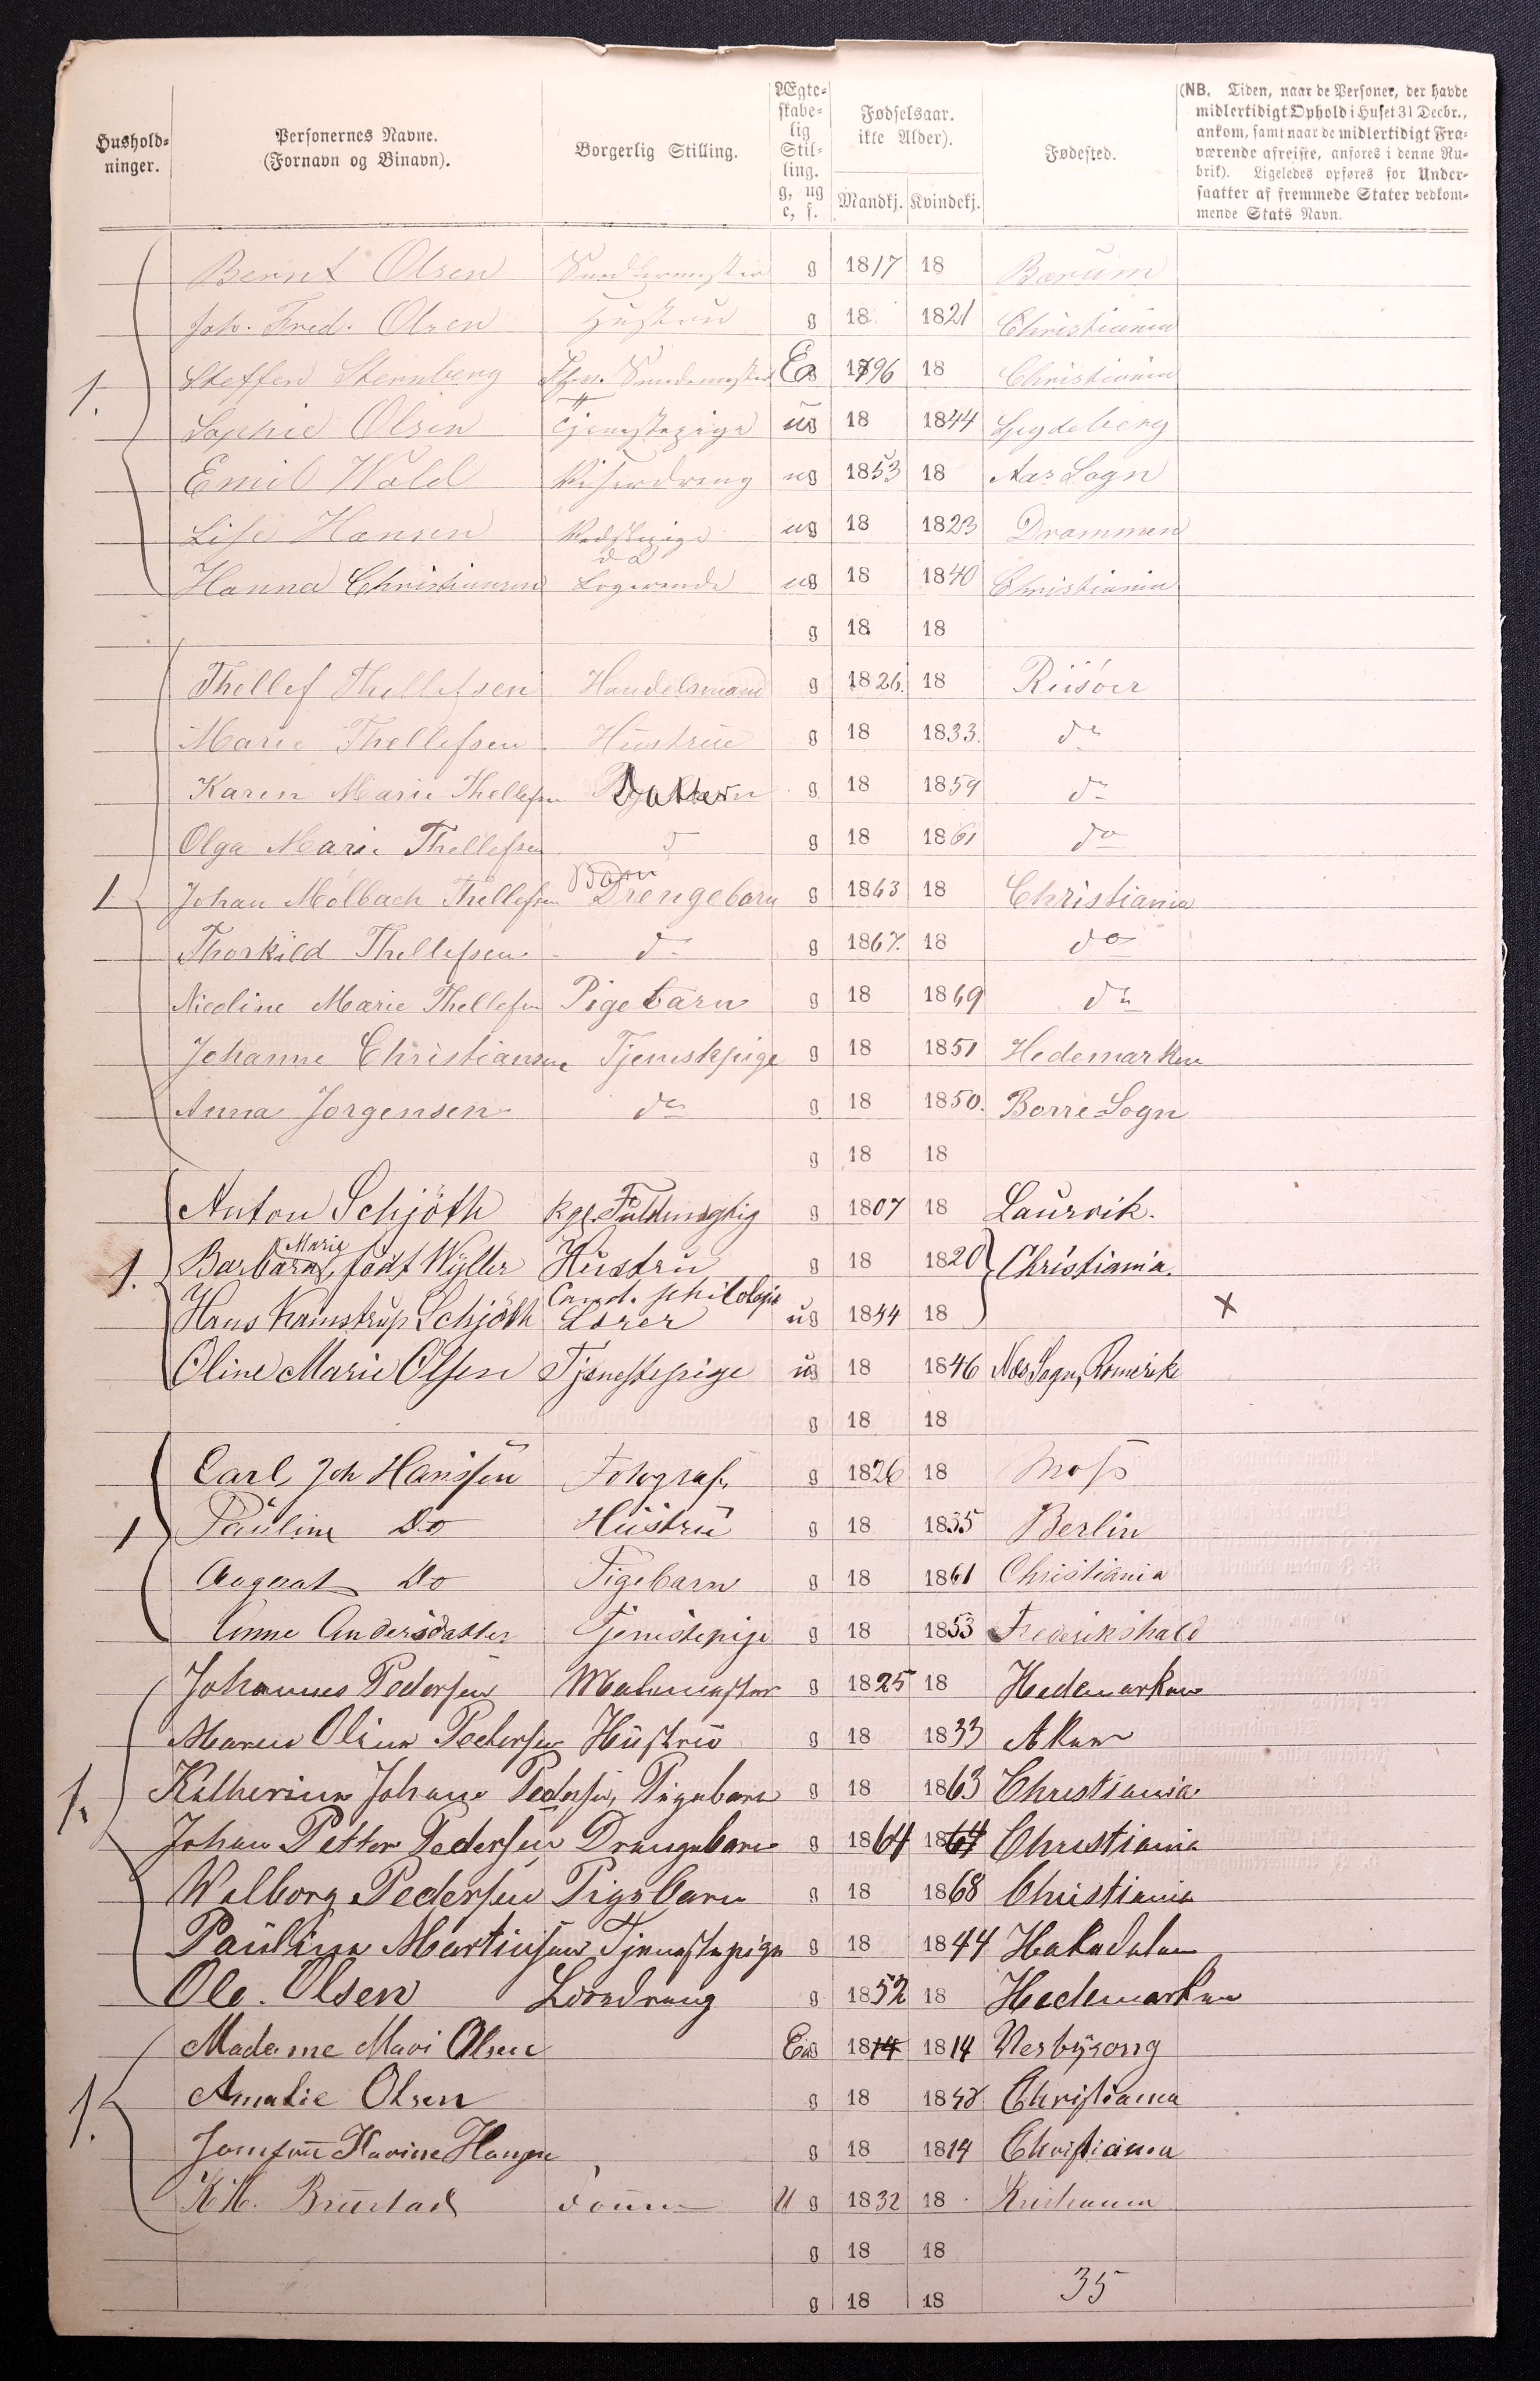 Hushold-
ninger.
Personernes Navne.
(Fornavn og Binavn).
Borgerlig Stilling.
Ægte-
skabe-
lig
Stil-
ling.
g, ug
e, f.
Fødselsaar.
ikke Alder).
Mandkj. Kvindekj.
Fødested.
(NB. Tiden, naar de Personer, der havde
midlertidigt Ophold i Huset 31 Decbr.,
ankom, samt naar de midlertidigt Fra-
værende afreiste, anføres i denne Ru-
brik). Ligeledes opføres for Under-
saatter af fremmede Stater vedkom-
mende Stats Navn.
Bernt Olsen g 1817 18 Bærum
Joh. Fred. Olsen Hustru g 18 1821 Christiania
1. Steffen Sternberg E 1796 18 Christiania
Sophie Olsen Tjenestepige ug 18 1844 Spydeberg
Emil Wold Viserdreng ug 1853 18 Aas Sogn
Lise Hansen ug 18 1823 Drammen
do
Hanna Christiansen Logerende ug 18 1840 Christiania
g 18 18
Thellef Thellefsen Handelsmand g 1826. 18 Riisöer
Marie Thellefsen Hustrue g 18 1833. do
Karen Marie Thellefsen Datter g 18 1859 do
Olga Marie Thellefsen g 18 1861 do
Barn
1 Johan Molbach Thellefsen Drengebarn g 1863 18 Christiania
Thorkild Thellefsen do g 1867. 18 do
Nicoline Marie Thellefsen Pigebarn g 18 1869 do
Johanne Christiansen Tjenestpige g 18 1851 Hedemarken
Anna Jorgensen do g 18 1850. Borre Sogn
g 18 18
Anton Schjöth kgl. Fuldmægtig g 1807 18 Laurvik.
Marie
1. Barbara, födt Wyller Hustru g 18 1820 Christiania.
Cand. philologie
Hans Kamstrup Schjöth Lærer ug 1844 18 X
Oline Marie Olsen Tjenestepige ug 18 1846 Næs Sogn, Romerike
g 18 18
Carl Joh Hanssen Fotograf, g 1826 18 Moss
1 Pauline Do Hustru g 18 1835 Berlin
August Do Pigebarn g 18 1861 Christiania
Anne Andersdatter Tjenestepige g 18 1853 Frederikshald
Johannes Pedersen Malemester g 1825 18 Hedemarken
Maren Oline Pedersen Hustru g 18 1833 Aker
1. Katherine Johane Pedersen, Pigebarn g 18 1863 Christiania
Johan Petter Pedersen Drengebarn g 1864 1864 Christiania
Walborg Pedersen Pigebarn g 18 1868 Christiania
Pauline Martinsen Tjenestepige g 18 1844 Hakadalen
Ole. Olsen Læredreng g 1852 18 Hedemarken
Madame Mari Olsen E 1814 1814
1. Amalie Olsen g 18 1848 Christiania
Jomfru Karine Haugen g 18 1814 Christiania
Brustad U g 1832 18 Kristiania
g 18 18
g 18 18 35